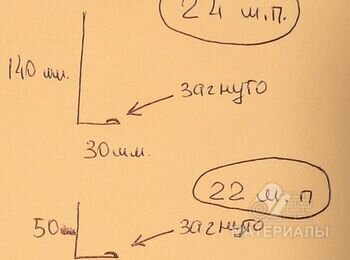 24 м.п.
140 мм.
загнуто
30 мм.
22 м.п
50мм
загнуто
МАТЕРИАЛЫ